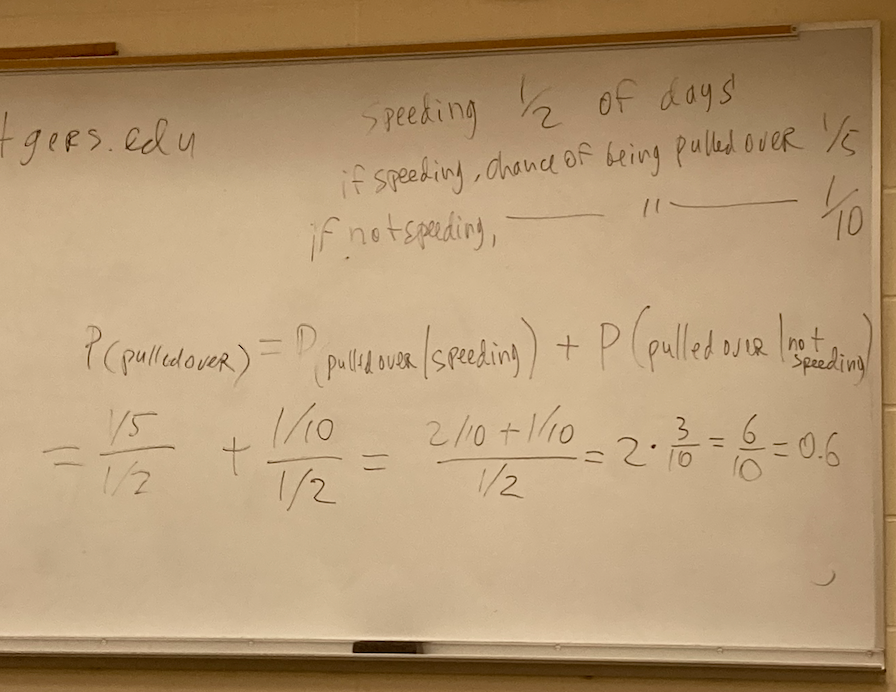 tgers.edu
speeding 1/2 of days
if speeding, chance of being pulled over 1/5
if not speeding, —— " —— 1/10
P(pulled over) = P(pulled over | speeding) + P(pulled over | not speeding)
= (1/5)/(1/2) + (1/10)/(1/2) = (2/10 + 1/10)/(1/2) = 2 · 3/10 = 6/10 = 0.6